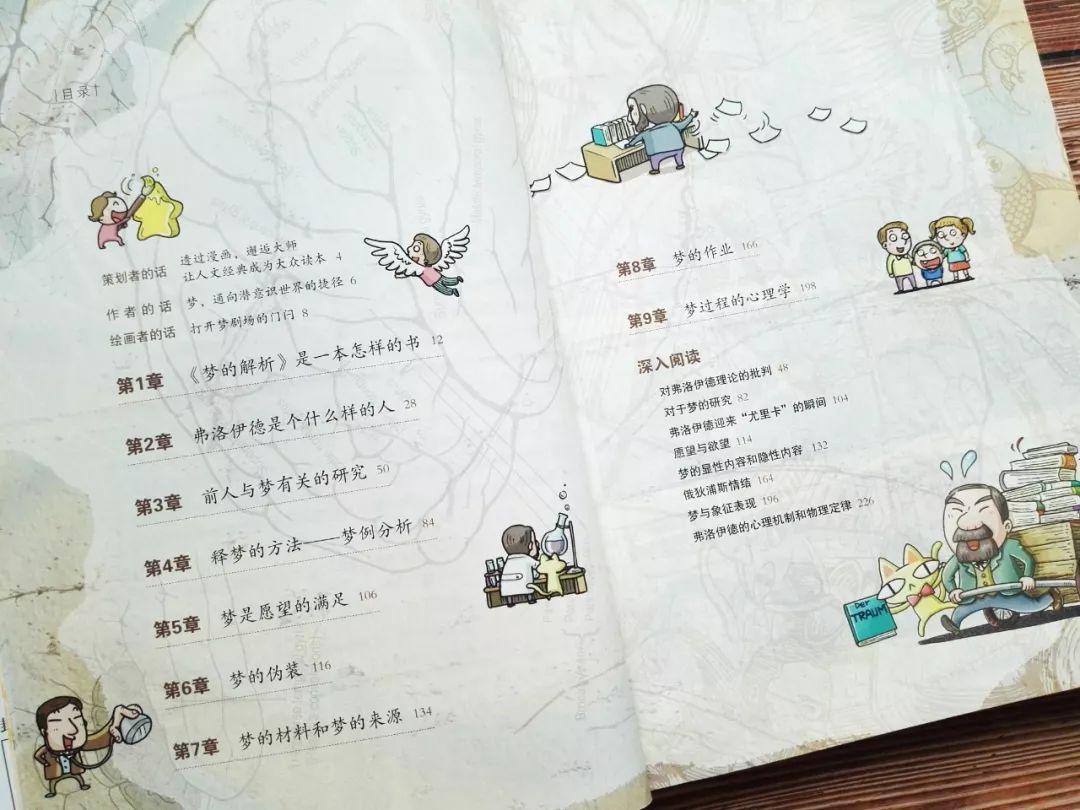 目录
策划者的话 透过漫画，邂逅大师
让人文经典成为大众读本 4
作者的话 梦，通向潜意识世界的捷径 6
绘画者的话 打开梦剧场的门闩 8
第1章 《梦的解析》是一本怎样的书 12
第2章 弗洛伊德是个什么样的人 28
第3章 前人与梦有关的研究 50
第4章 释梦的方法——梦例分析 84
第5章 梦是愿望的满足 106
第6章 梦的伪装 116
第7章 梦的材料和梦的来源 134
第8章 梦的作业 166
第9章 梦过程的心理学 198
深入阅读
对弗洛伊德理论的批判 48
对于梦的研究 82
弗洛伊德迎来“尤里卡”的瞬间 104
愿望与欲望 114
梦的显性内容和隐性内容 132
俄狄浦斯情结 164
梦与象征表现 196
弗洛伊德的心理机制和物理定律 226
Der
TRAUM